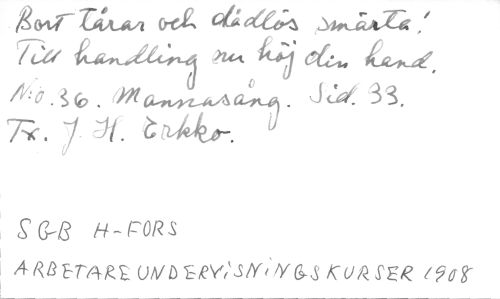 Bort tårar och dådlös smärta!
Till handling nu höj din hand.
N:o. 36. Mannasång. Sid. 33.
Tx. J. H. Erkko.
SGB H-FORS
ARBETAREUNDERVISNINGSKURSER 1908